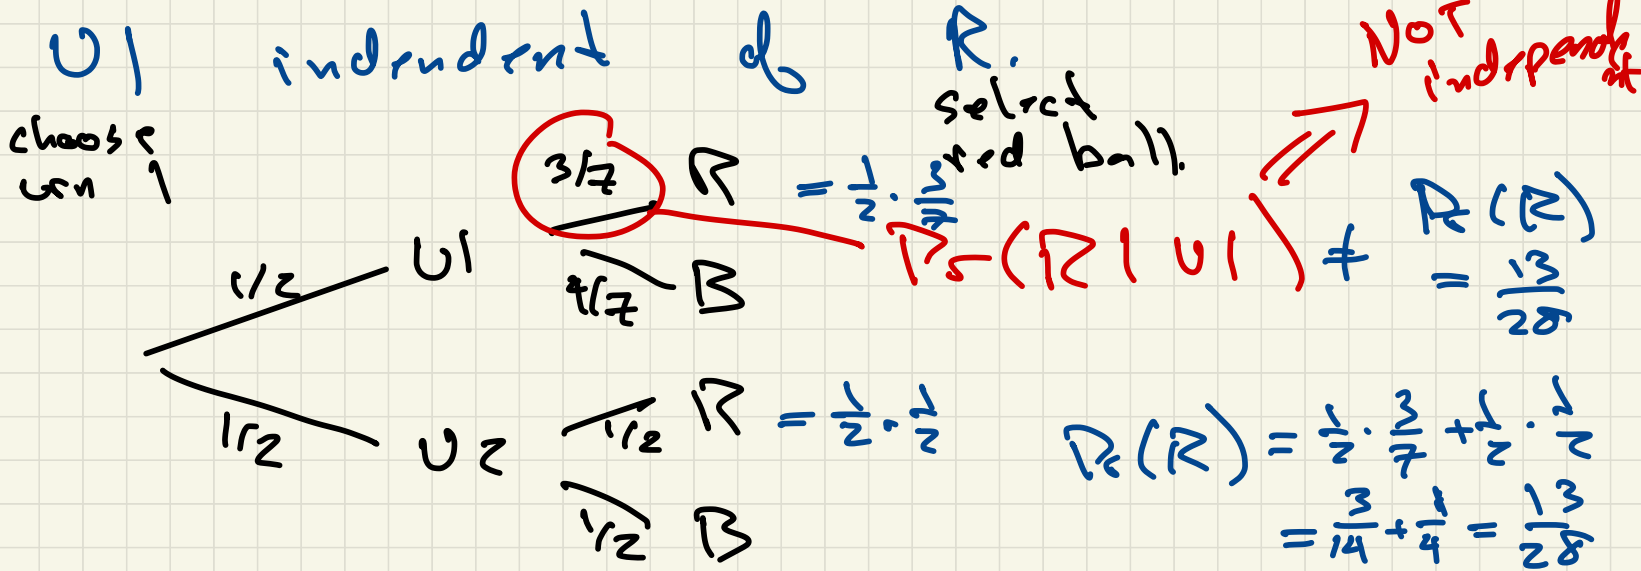 U1 indendent of R.
Not
independent
choose
urn 1
select
red ball.
3/7 R = 1/2 · 3/7
Pr(R | U1) ≠ Pr(R)
= 13/28
1/2 U1
4/7 B
1/2 U2
1/2 R = 1/2 · 1/2
1/2 B
Pr(R) = 1/2 · 3/7 + 1/2 · 1/2
= 3/14 + 1/4 = 13/28